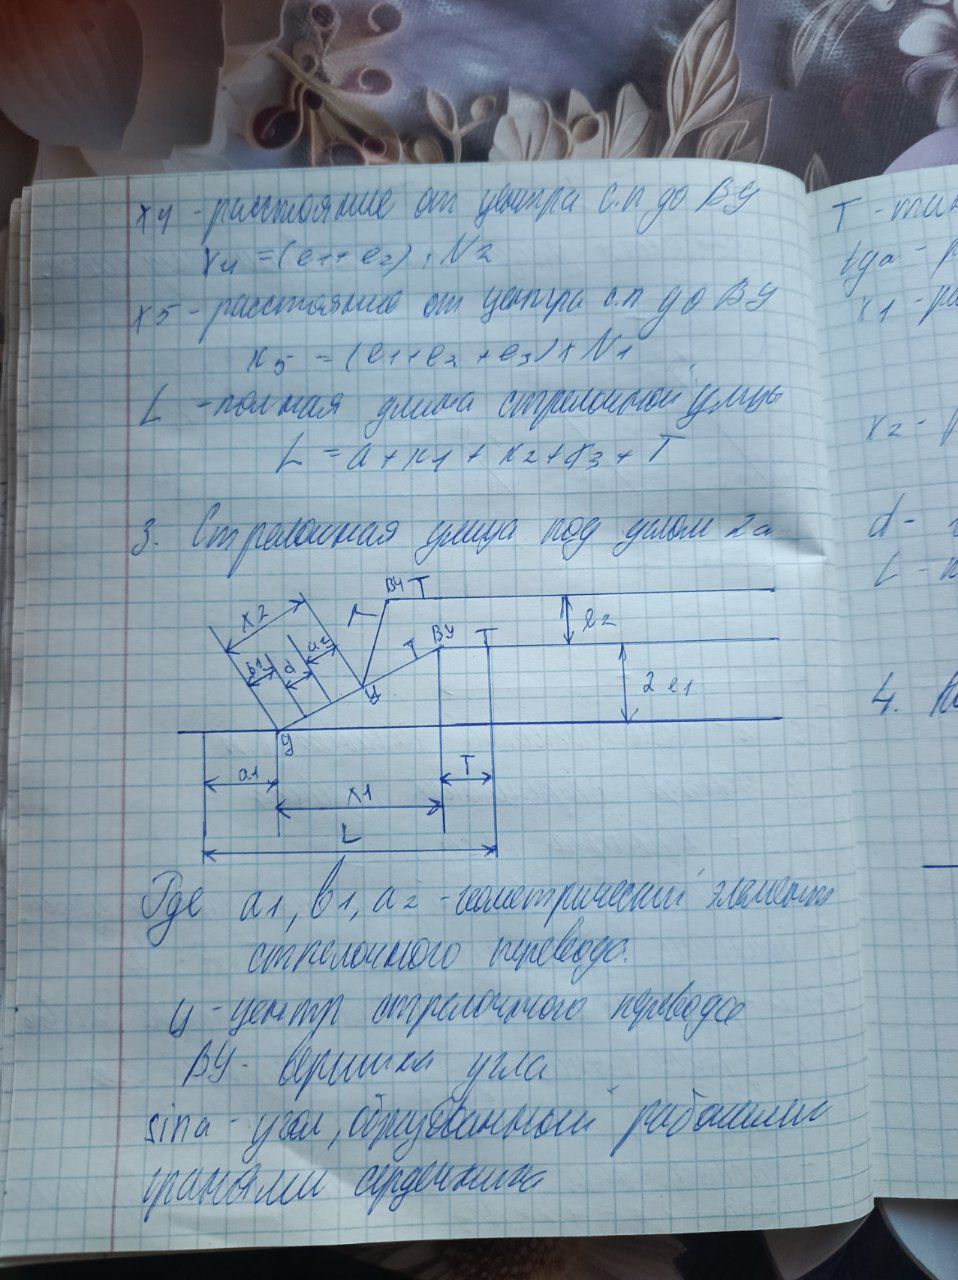 x4 - расстояние от центра с.п до ВУ
x4 = (e1+e2) · N2
x5 - расстояние от центра с.п до ВУ
x5 = (e1+e2+e3) x N1
L - полная длина стрелочной улицы
L = a + x1 + x2 + x3 + T
3. Стрелочная улица под углом 2a
ВУ T
x2
T
e2
a2
ВУ
T
T
b1
d
ц
2 e1
ц
a1
T
x1
L
Где a1, b1, a2 - геометрический элементы
стрелочного перевода.
Ц - центр стрелочного перевода
ВУ - вершина угла
sina - угол, образованный рабочими
гранями сердечника
T -
tga -
x1 -
x2 -
d -
L -
4.